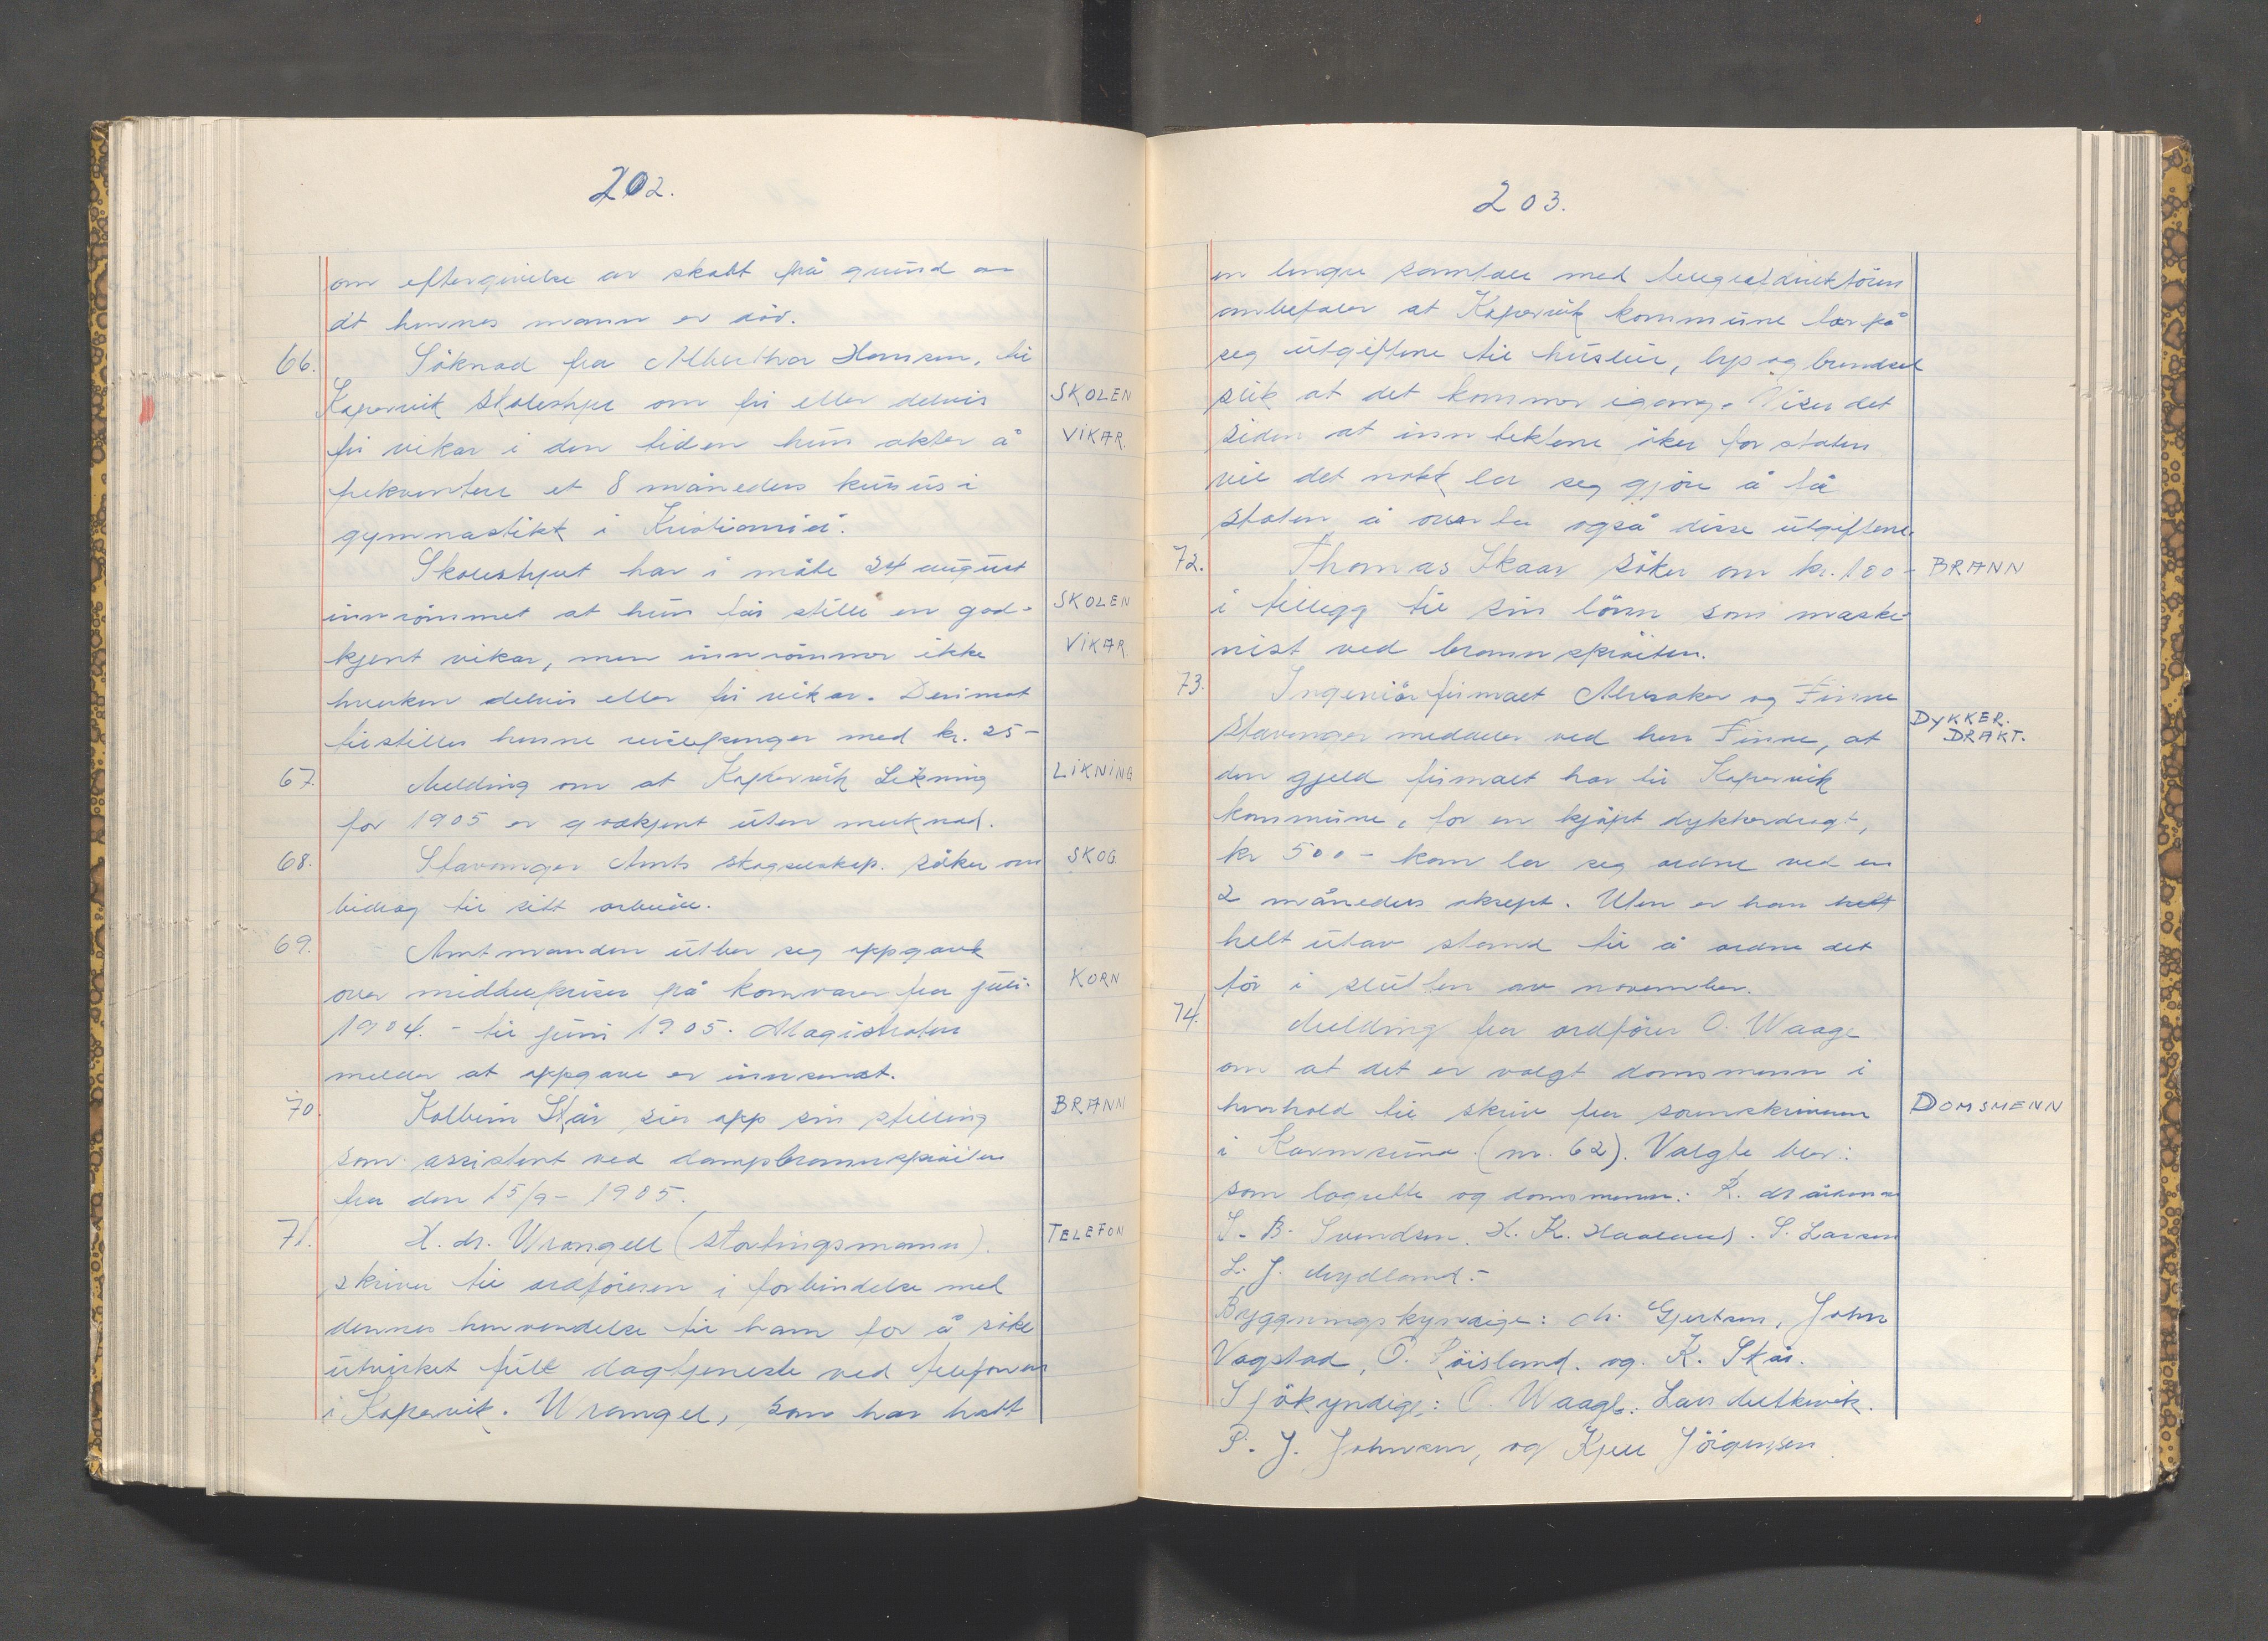 202.
om eftergivelse av skatt på grund av
at hennes mann er död.
66. Söknad fra Albertha Hansen, til
Kopervik Skolestyre om fri eller delvis SKOLEN
fri vikar i den tiden hun akter å VIKAR.
frekventere et 8 måneders kursus i
gymnastikk i Kristiania.
Skolestyret har i möte 24 august
innrömmet at hun får stille en god- SKOLEN
kjent vikar, men innrömmer ikke VIKAR.
hverken delvis eller fri vikar. Derimot
tilstilles henne reisepenger med kr. 25-
67. Melding om at Kopervik Likning LIKNING
for 1905 er godkjent uten merknad.
68. Stavanger Amts skogselskap. söker om SKOG
bidrag til sitt arbeide.
69. Amtmanden utber seg oppgave
over middelpriser på kornvarer fra juli- KORN
1904. - til juni 1905. Magistraten
melder at oppgave er innsendt.
70. Kolbein Skår sier opp sin stilling BRANN
som assistent ved dampbrannspröiten
fra den 15/9 - 1905.
71. H. M. Wrangell (stortingsmann). TELEFON
skriver til ordföreren i forbindelse med
dennes henvendelse til ham for å söke
utvirket full dagtjeneste ved telefonen
i Kopervik. Wrangel, som har hatt
203.
en lengre samtale med telegrafdirektören
anbefaler at Kopervik kommune tar på
seg utgiftene til husleie, lys og brendsel
slik at det kommer igang. Viser det
siden at inntektene öker for staten
vil det nokk lar seg gjöre å få
staten å overta også disse utgiftene.
72. Thomas Skaar söker om kr. 100- BRANN
i tillegg til sin lönn som maski-
nist ved brannspröiten.
73. Ingeniörfirmaet Alvsaker og Finne
Stavanger meddeler ved herr Finne, at DYKKER.
DRAKT.
den gjeld firmaet har til Kopervik
kommune, for en kjöpt dykkerdragt,
kr 500- kan lar seg ordne ved en
2 måneders aksept. Uten er han helt
helt utav stand til å ordne det
för i slutten av november.
74. Melding fra ordförer O. Waage
om at det er valgt domsmenn i
henhold til skriv fra sorenskriveren DOMSMENN
i Karmsund (nr. 62). Valgte blev:
som lagrette og domsmenn: R.
S. B. Svendsen, H. K. Haaland. S. Larsen
L. J. Mydland.-
Byggningskyndige: M. Gjertsen, John
Vagstad, O. Röisland. og K. Skår.
Sjökyndige: O. Waage. Lars Meltevik.
P. J. Johnsen, og Kjell Jörgensen.